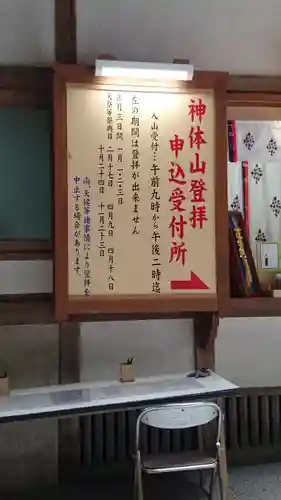 神体山登拝
申込受付所
入山受付…午前九時から午後二時迄
左の期間は登拝が出来ません
正月三日間 一月一・二・三日
大祭祭典日 二月十七日 四月九日 四月十八日
十月二十四日 十一月二十三日
尚、天候等諸事情により登拝を
中止する場合があります。